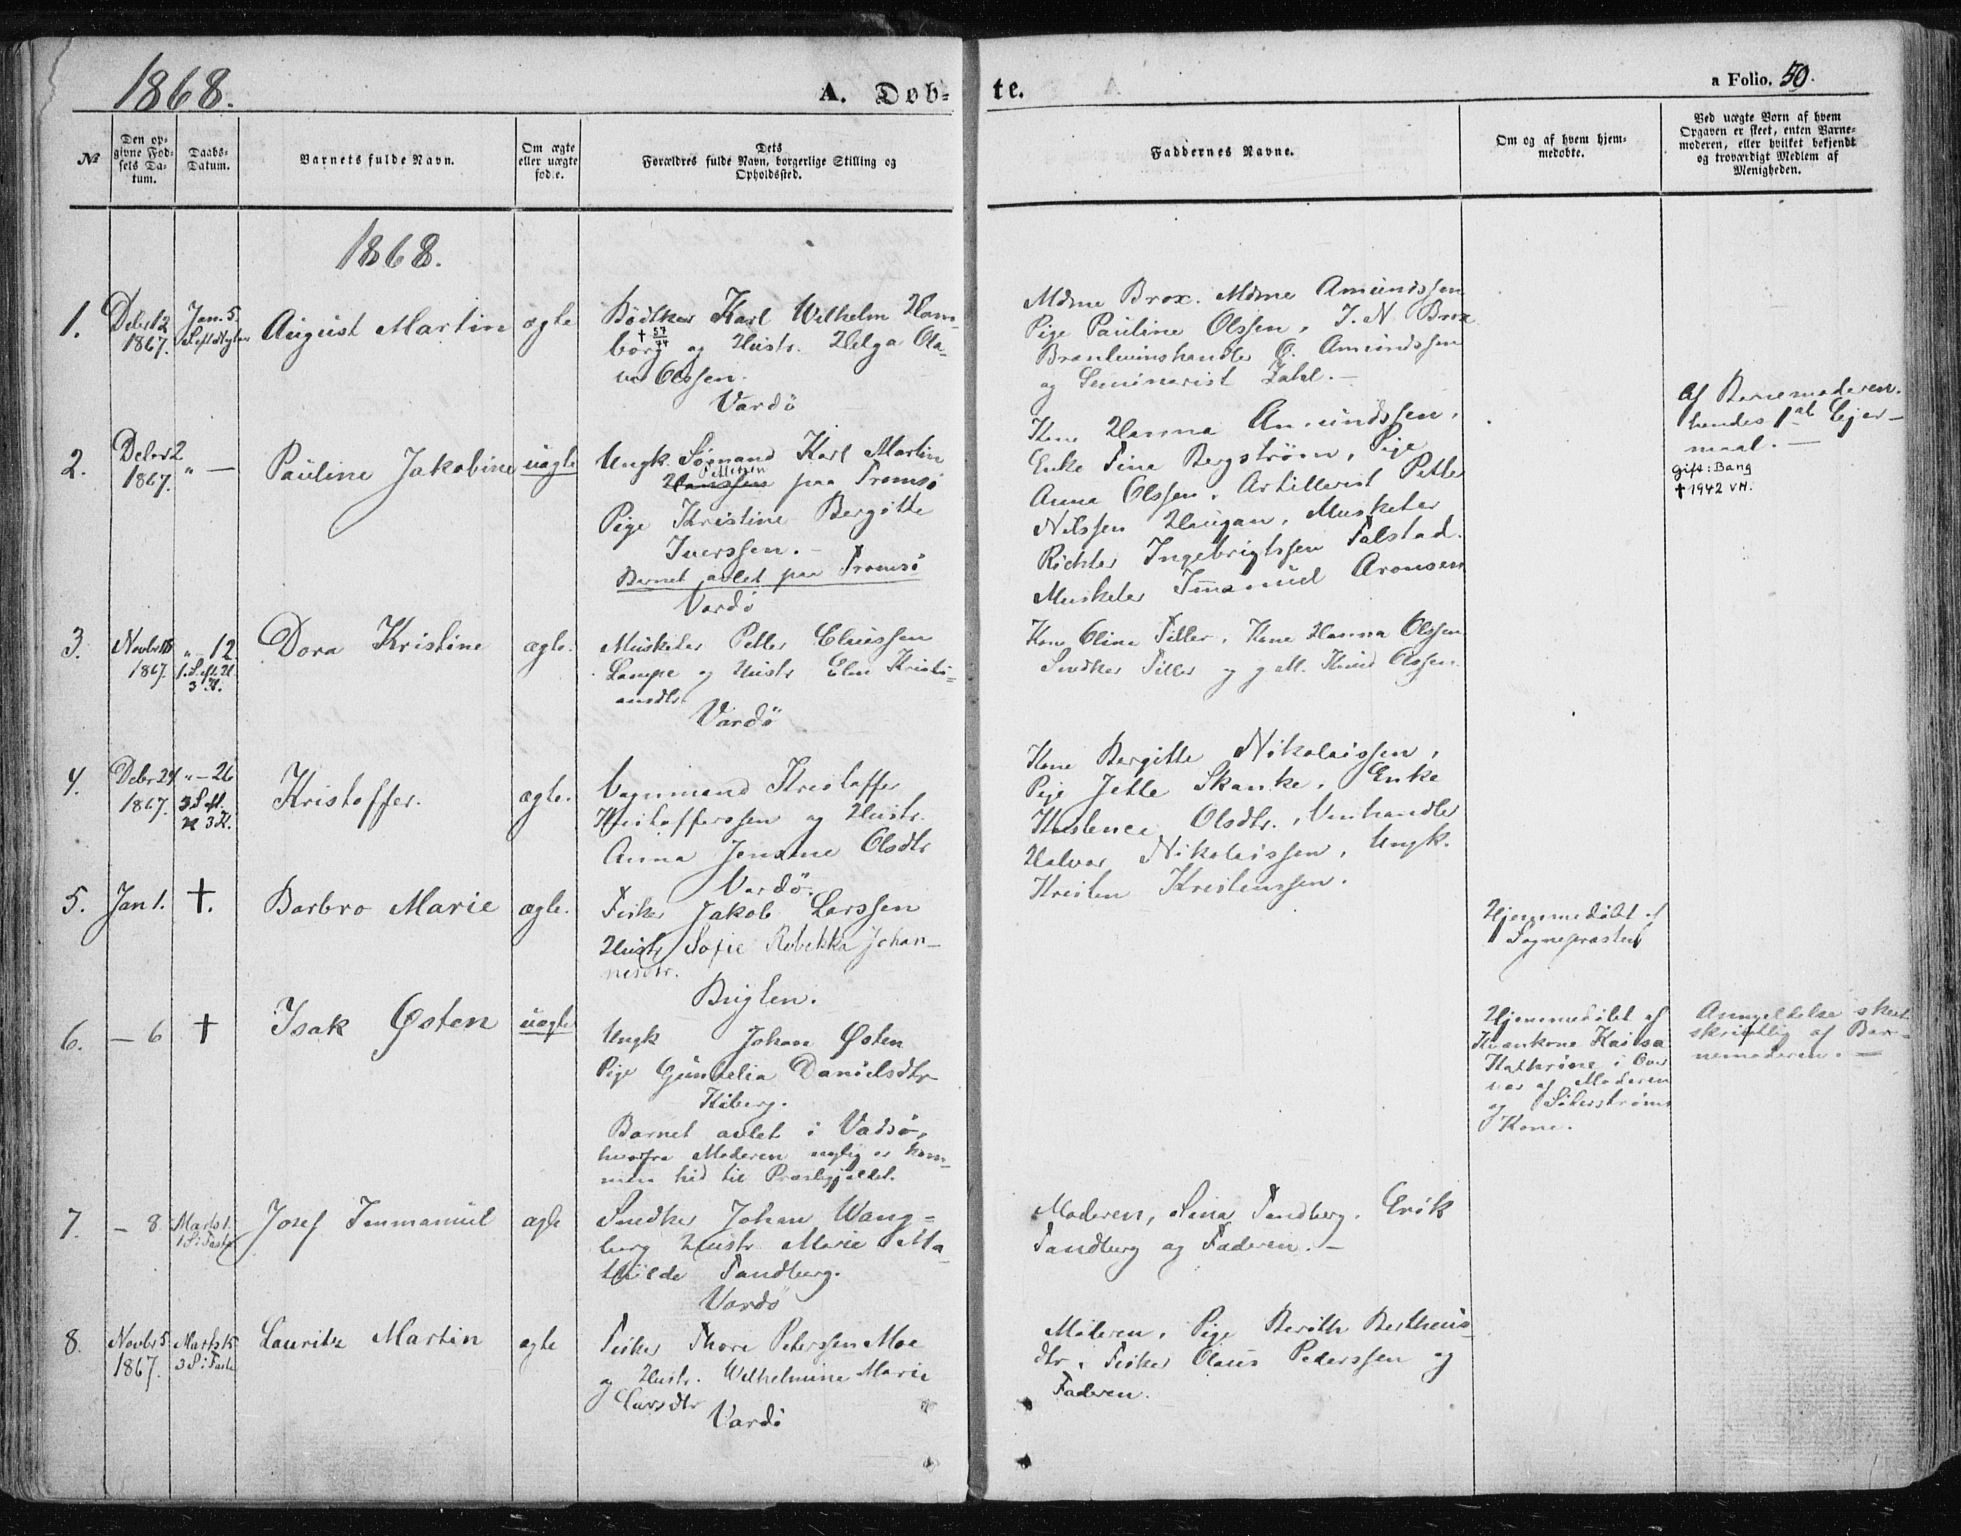 1868.
A. Døb-
te.
a Folio. 50.
№
Den op-
givne Fød-
sels Da-
tum.
Daabs-
Datum.
Barnets fulde Navn.
Om ægte
eller uægte
fød.e.
Dets
Forældres fulde Navn, borgerlige Stilling og
Opholdssted.
Faddernes Navne.
Om og af hvem hjem-
medøbte.
Ved uægte Børn af hvem
Opgaven er skeet, enten Barne-
moderen, eller hvilket bekjendt
og troværdigt Medlem af
Menigheden.
1868.
1.
Debr 12
1867.
Jan. 5.
August Martin
ægte
Bødker Karl Wilhelm Ham-
† 57/74
borg og Hustr. Helga Ola-
va Olssen.
Vardö
Mdme Brox. Mdme Amundssen
Pige Pauline Olssen, J. N. Brox
Brænlevinshandler O. Amundssen
og Seminarist Zahl. –
2.
Debr 2
1867.
" –
Pauline Jakobine
uægte
Ungk. Sømand Karl Martin
Pettersen
Hanssen paa Tromsö
Pige Kristine Bergitte
Iverssen. –
Barnet avlet paa Tromsö
Vardö
Kone Hanna Amundssen,
Enke Fina Bergström, Pige
Anna Olssen, Artillerist Petter
Nilssen Haugan, Musketer
Richter Ingebrigtssen Falstad.
Musketer Imanuel Aronsen
Af Barnemoderen.
hendes 1ste Lejer-
maal. –
Gift: Bang
† 1942 VH.
3.
Novbr 18
1867.
" – 12
1. S. eft. H
3 K.
Dora Kristine
ægte.
Musketer Petter Claussen
Lampe og Hustr. Elen Kristi-
ansdtr
Vardö
Kone Olina Tiller, Kone Hanna Olssen
Snedker Tiller og g. M. Knud Olssen.
4.
Debr 24
1867.
" – 26
3 S. eft.
H 3 K.
Kristoffer.
ægte.
Vognmand Kristoffer
Kristofferssen og Hustr.
Anna Jensine Olsdtr
Vardö.
Kone Bergitte Nikolaissen,
Pige Jette Skanke, Enke
Olsdtr., Vinhandler
Halvor Nikolaissen, Ungk.
Kristen Kristenssen.
5.
Jan 1.
†.
Barbro Marie
ægte.
Fisker Jakob Larssen
Hustr Sofie Rebekka Johan-
nesdtr.
Hjemmedöbt af
Sognepræsten
6.
– 6
†
Isak Østen
uægte
Ungk Johan Østen
Pige Danielsdtr
Kiberg.
Barnet avlet i Vadsö,
hvorfra Moderen nylig er kom-
men hid til Præstegjældet.
Hjemmedöbt af
Kvænkone Kaisa
Kathrine i Over
vær af Moderen
og Söderströms
Kone.
Anmeldelse skeet
skriftlig af Bar-
nemoderen. –
7.
– 8.
Marts 1.
1 S. i Faste
Josef Immanuel
ægte
Snedker Johan Wang-
berg Hustr. Marie Ma-
thilde Sandberg.
Vardö
Moderen, Lina Sandberg, Erik
Sandberg og Faderen. –
8.
Novbr 5
1867.
Marts 15
3 S i Faste
Lauritz Martin
ægte
Fisker Thore Peterssen Moe
og Hustr. Wilhelmine Marie
Larsdtr
Vardö
Moderen, Pige Berith Bertheus-
dtr, Fisker Olaus Pederssen og
Faderen.